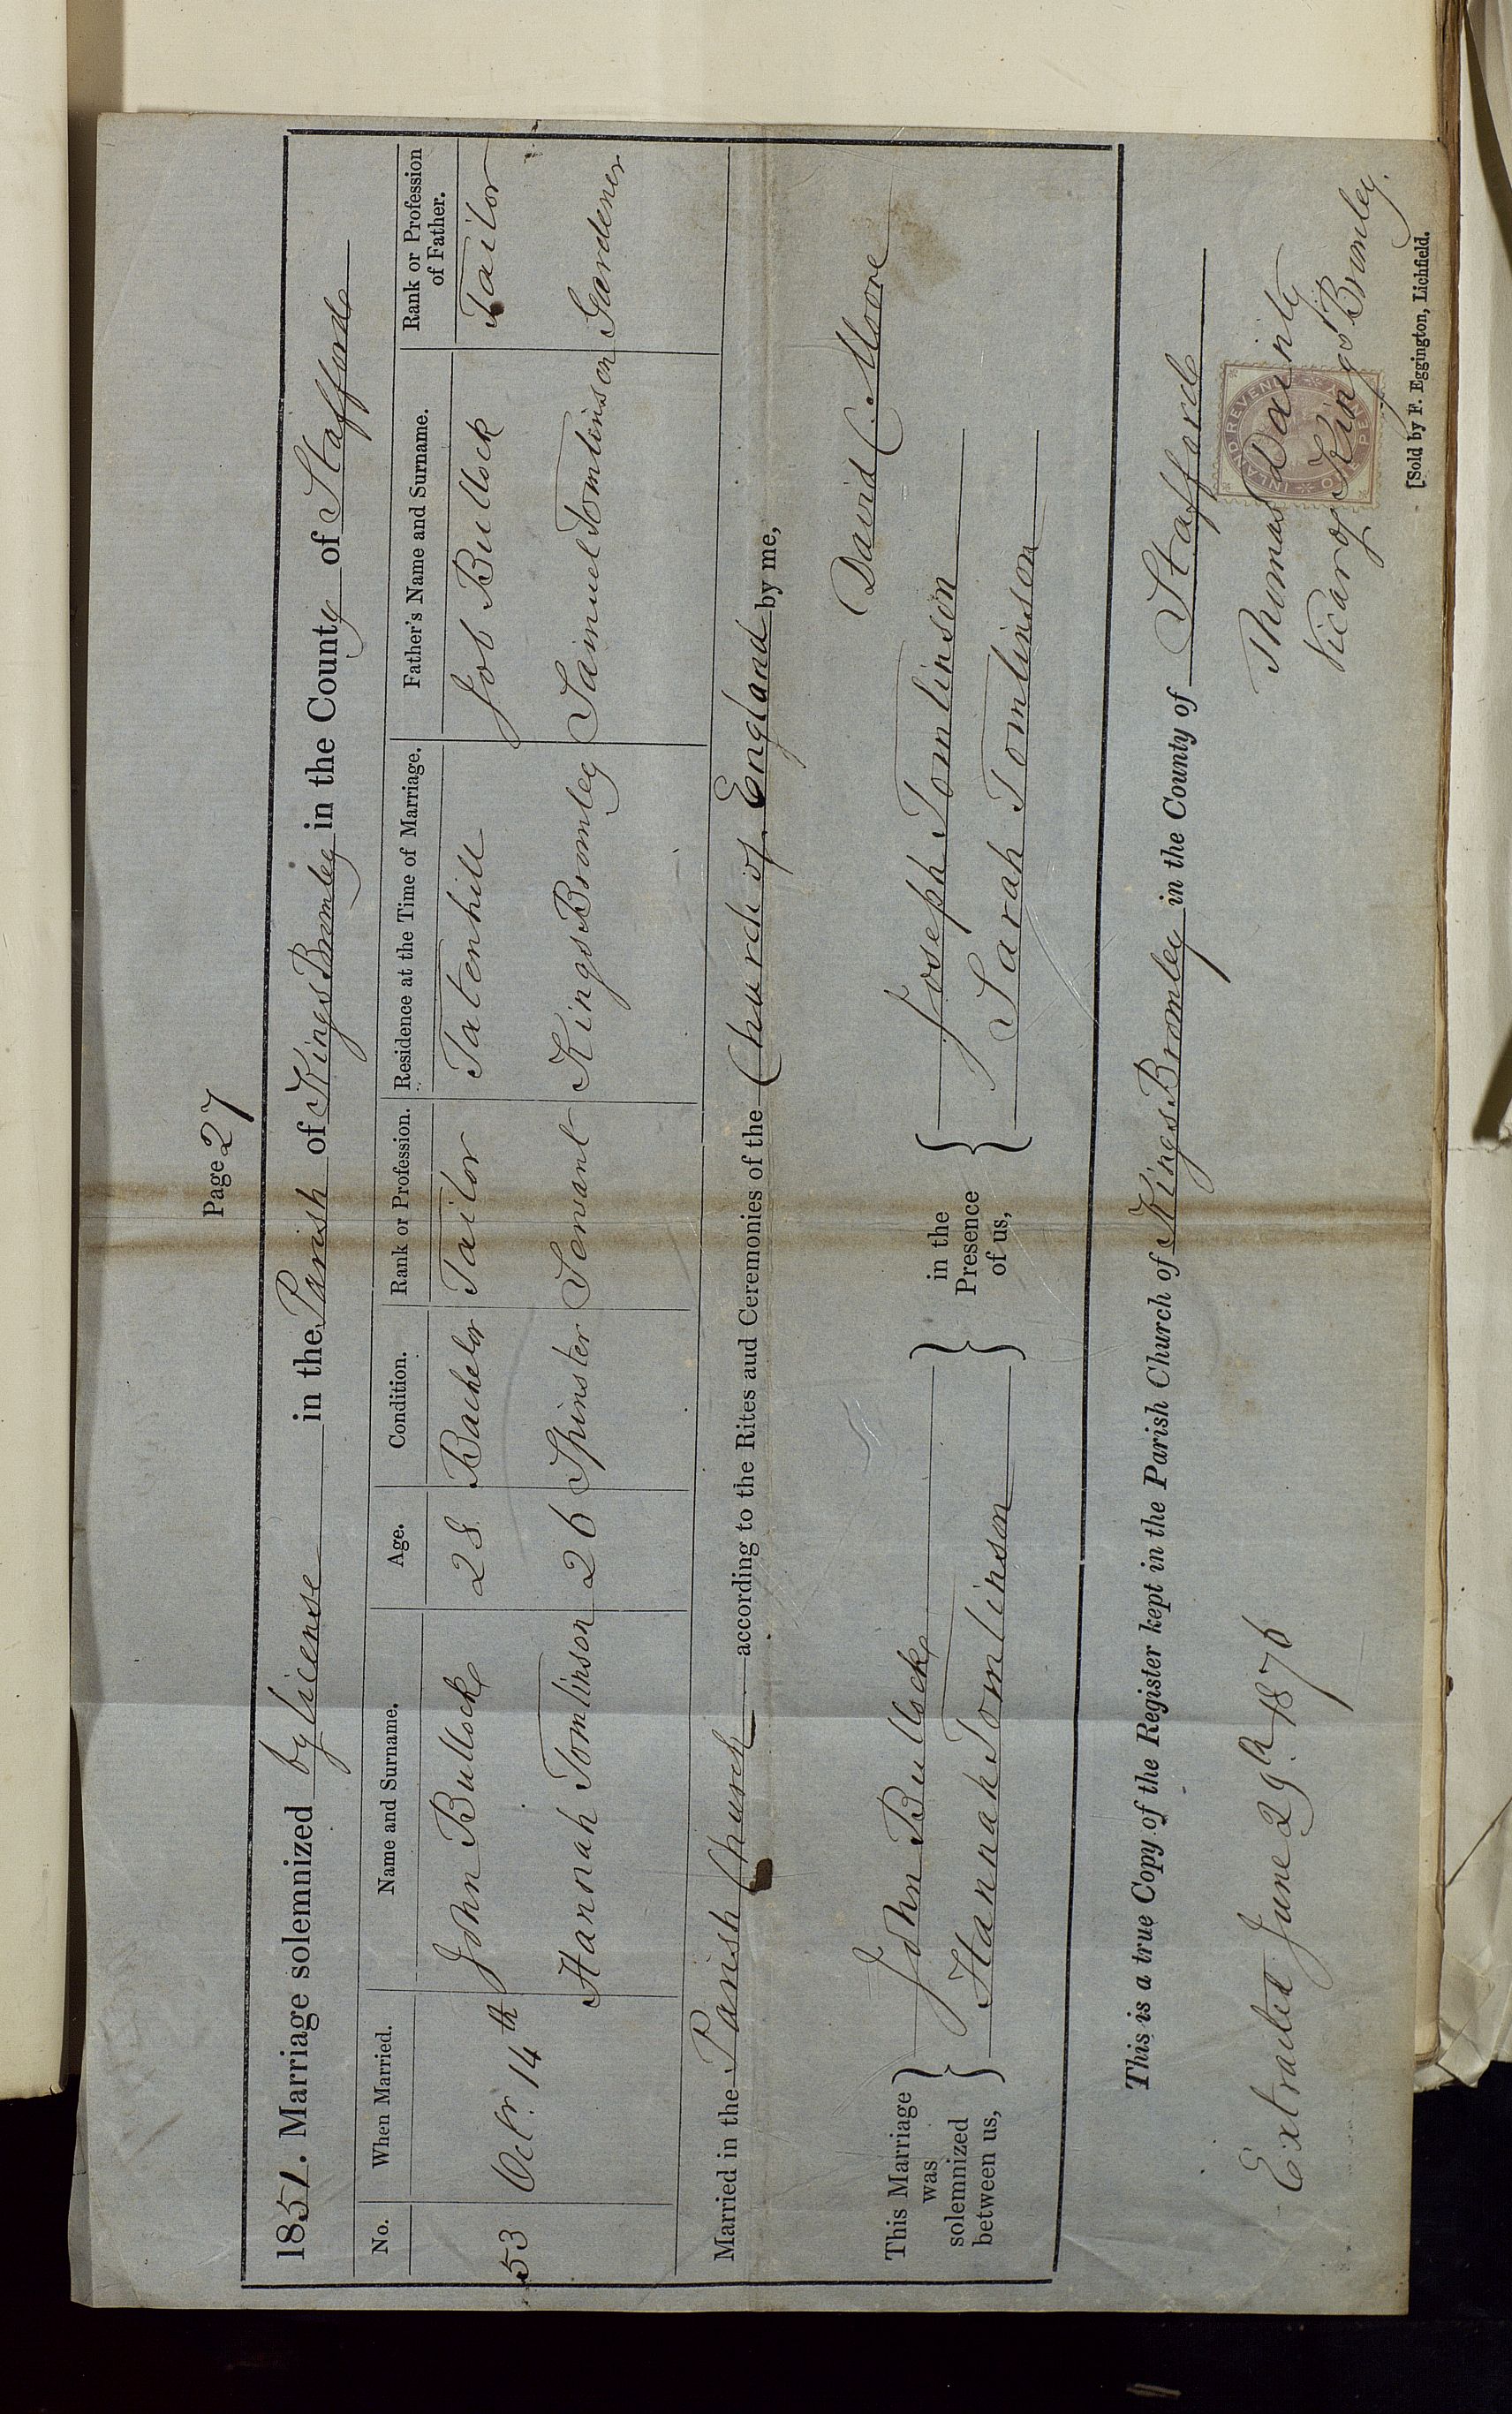 Page 27
1851. Marriage solemnized by license in the Parish of Kings Bromley in the County of Stafford
No. When Married. Name and Surname. Age. Condition. Rank or Profession. Residence at the Time of Marriage. Father's Name and Surname. Rank or Profession of Father.
53 Octr. 14th John Bullock 28 Bachelor Tailor Tatenhill Job Bullock Tailor
Hannah Tomlinson 26 Spinster Servant Kings Bromley Samuel Tomlinson Gardener
Married in the Parish Church according to the Rites and Ceremonies of the Church of England by me,
David C. Moore
This Marriage was solemnized between us,
John Bullock
Hannah Tomlinson
in the Presence of us,
Joseph Tomlinson
Sarah Tomlinson
This is a true Copy of the Register kept in the Parish Church of Kings Bromley in the County of Stafford
Extracted June 29th. 1876
Thomas Dainty
Vicar of Kings Bromley.
INLAND REVENUE ONE PENNY
[Sold by F. Eggington, Lichfield.